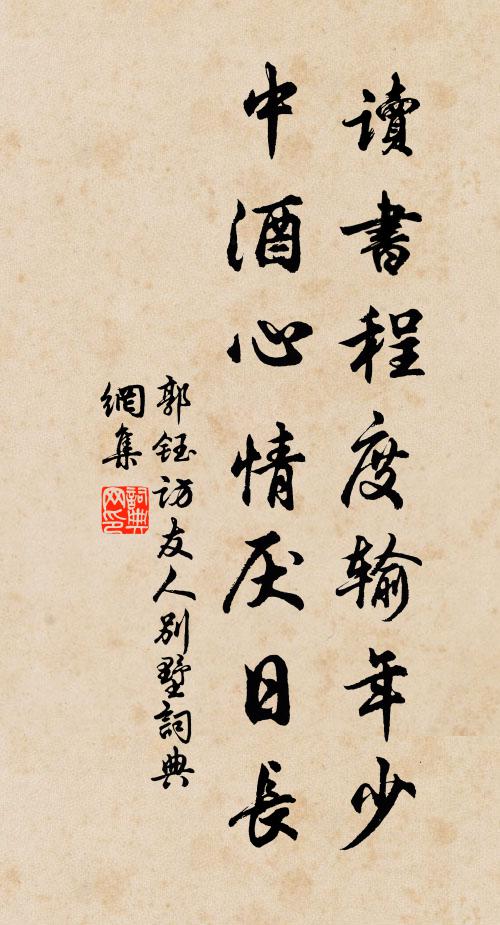 讀書程度輸年少
中酒心情厌日長
郭鈺访友人别墅詞典
網集
詞典
网印